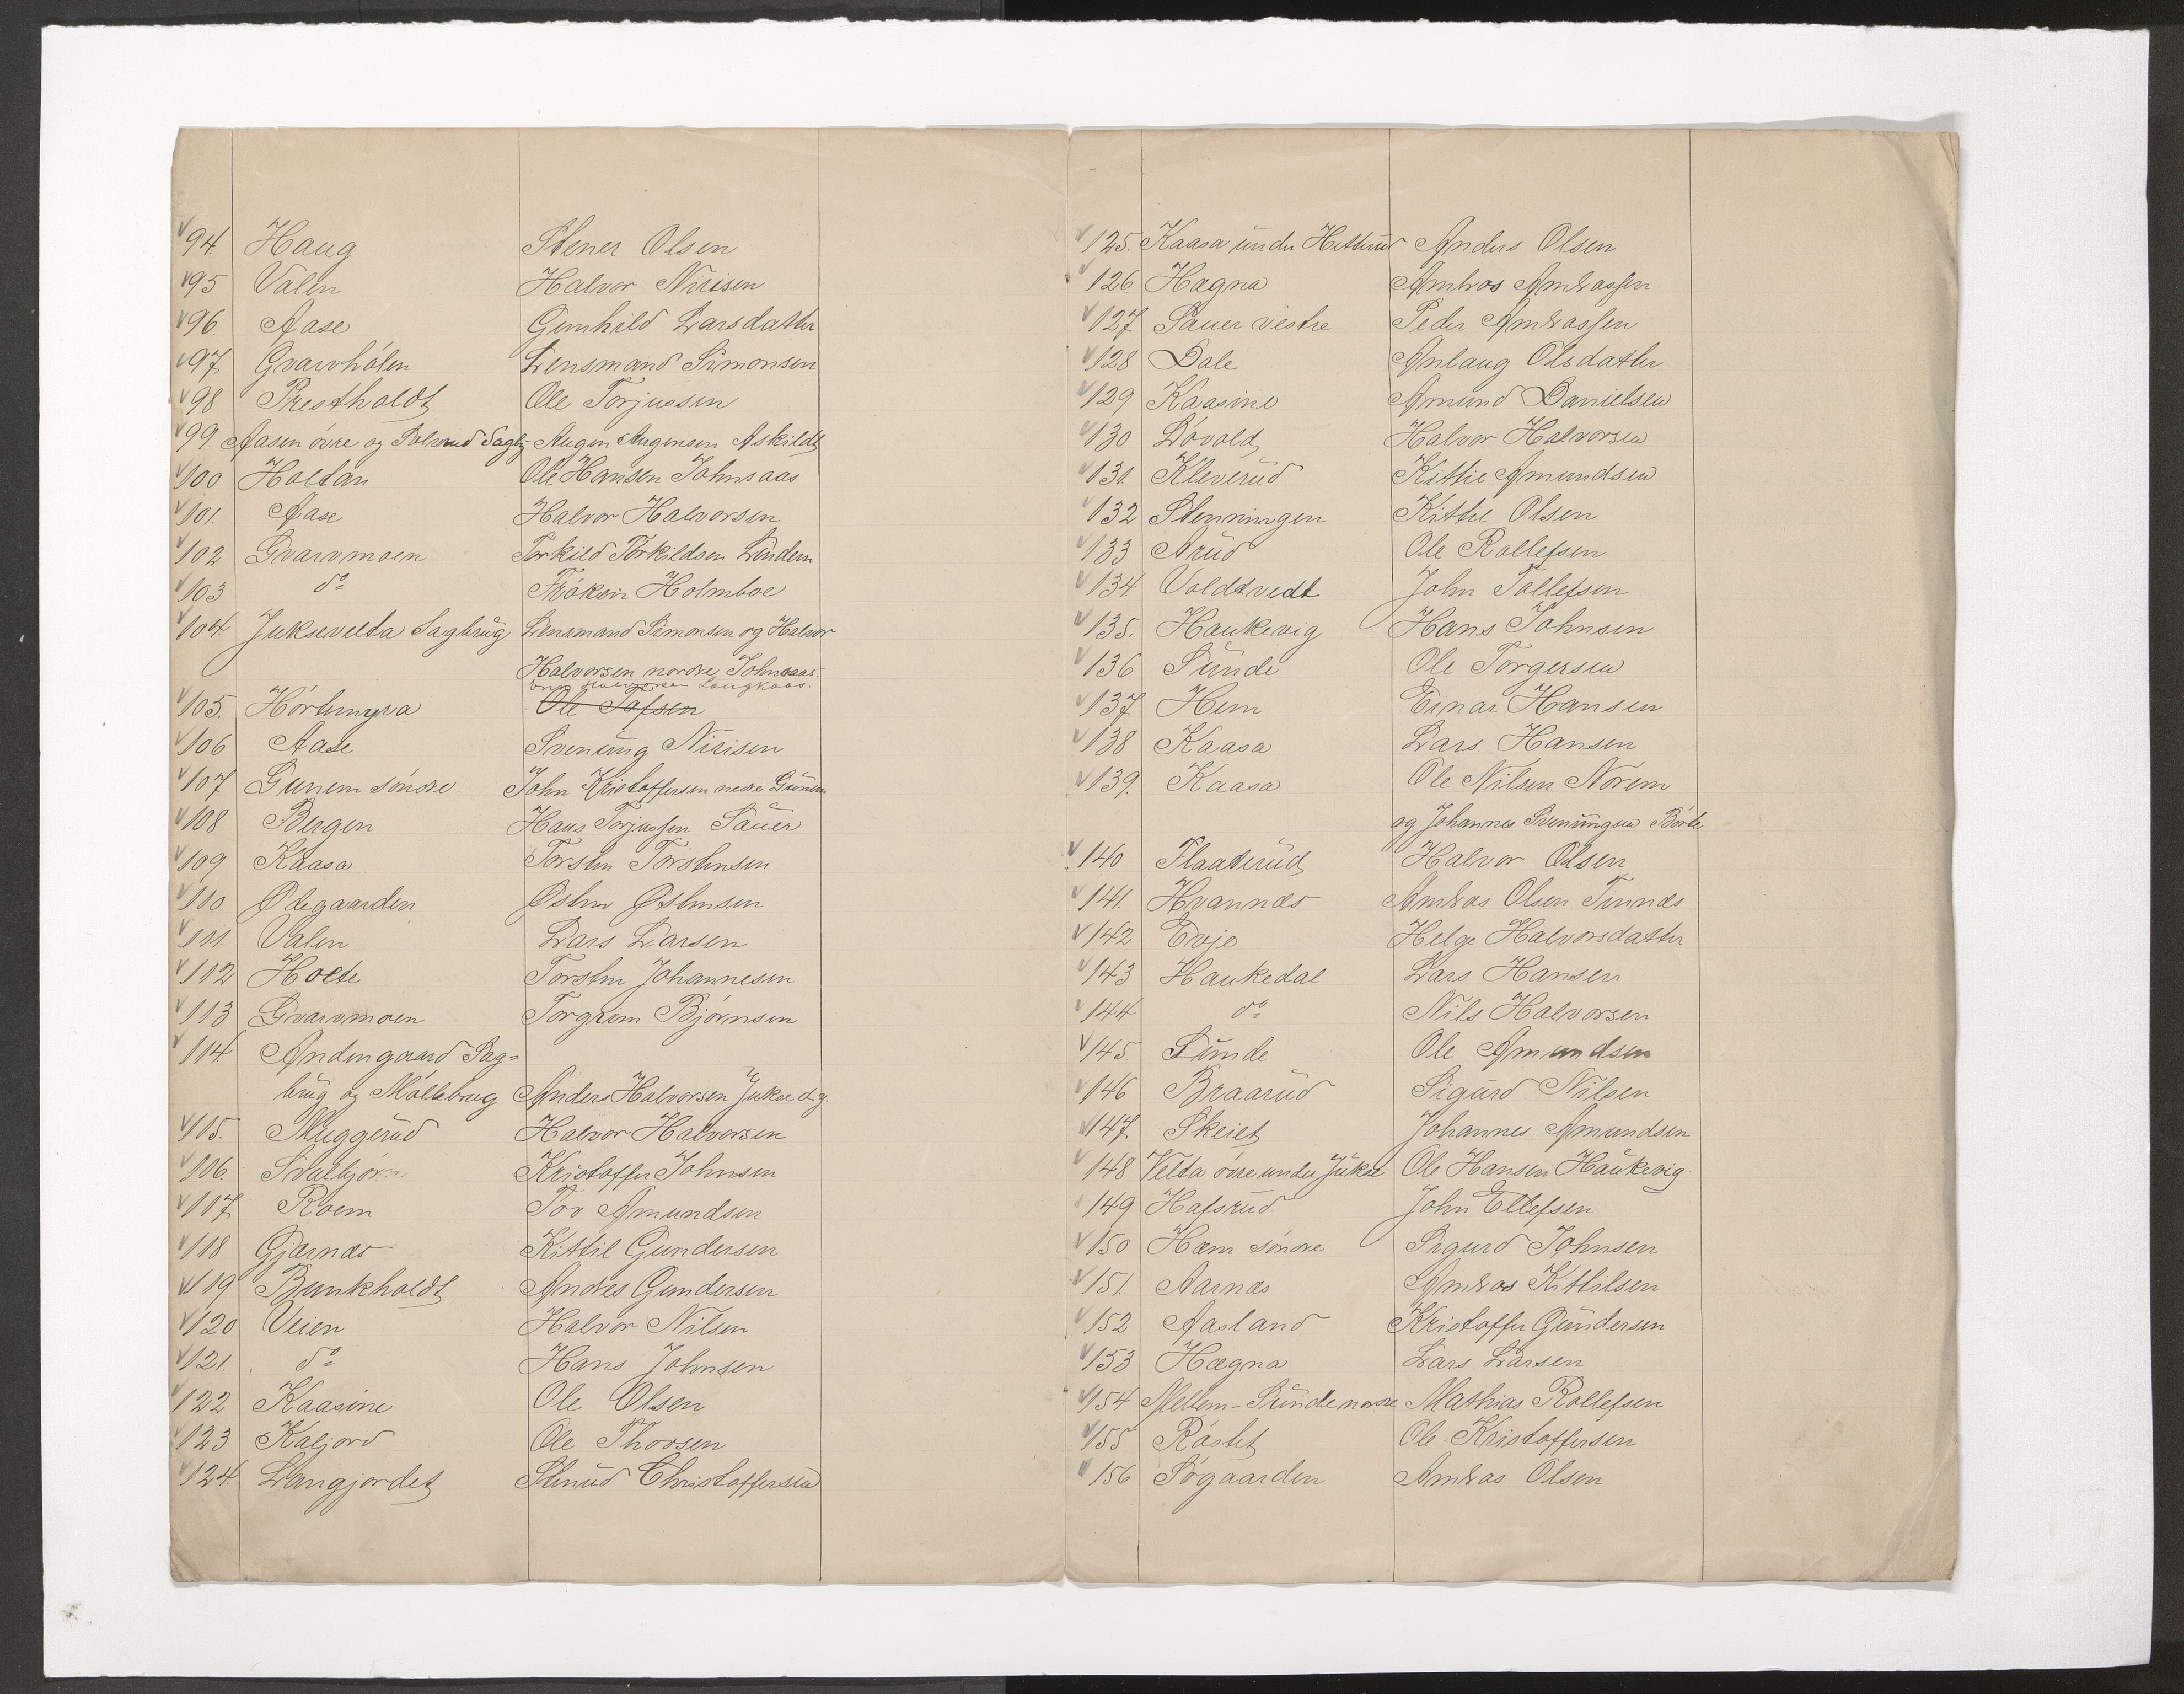 94. Haug Stener Olsen
95 Valen Halvor Nirisen
96. Aase Gunhild Larsdatter
97 Gvarvhólen Lensmand Simonsen
98 Prestholdt Ole Torjussen
99. Aasen óvre og Solvrud Sagbg Augen Augensen Askildt
100 Holtan Ole Hansen Johnsaas
101. Aase Halvor Halvorsen
102 Gvarvmoen Torkild Torkildsen Lindem
103 do Frøken Holmboe
104. Juksevelta Sagbrug Lensmand Simonsen og Halvor
Halvorsen nordre Johnsaas.
Halvorsen Langkaas.
105. Hórtemyra Ole Tofsen
106 Aase Svenung Nirisen
107 Gunem søndre John Kristoffersen nedre Gunem
108 Bergen Hans Torjussen Sauer
109 Kaasa Torsten Torstensen
110 Ødegaarden Østen Østensen
111. Valen Lars Larsen
112 Holte Torsten Johannesen
113 Gvarvmoen Torgrim Bjørnsen
114. Andengaard Sag=
brug og Móllebrug Anders Halvorsen Jukse d.y.
115. Muggerud Halvor Halvorsen
116. Kristoffer Johnsen
117 Roem Tov Amundsen
118 Gjernæs Kittil Gundersen
119 Bunkholdt Andres Gundersen
120 Veien Halvor Nilsen
121. do Hans Johnsen
122 Kaasine Ole Olsen
123 Kaljord Ole Thorsen
124. Langjordet Stenud Christoffersen
125. Kaasa under Hitterud Anders Olsen
126 Hægna Ambros Ambrossen
127 Sauer vestre Peder Ambrossen
128 Dale Anlaug Olsdatter
129 Kaasine Amund Danielsen
130 Lóvold Halvor Halvorsen
131. Kleverud Kittil Amundsen
132 Stenningen Kittil Olsen
133 Arud Ole Rollefsen
134 Voldtvedt John Tollefsen
135. Haukevig Hans Johnsen
136 Sunde Ole Torgersen
137 Hem Einar Hansen
138 Kaasa Lars Hansen
139. Kaasa Ole Nilsen Norem
og Johannes Svenungsen Bórte
140 Flaaterud Halvor Olsen
141. Hvannæs Ambros Olsen Tinnæs
142 Evje Helge Halvorsdatter
143 Haukedal Lars Hansen
144 do Nils Halvorsen
145. Sunde Ole Amundsen
146 Braarud Sigurd Nilsen
147 Skeiet Johannes Amundsen
148 Velta óvre under Jukse Ole Hansen Haukevig
149 Hafsrud John Ellefsen
150 Hæm søndre Sigurd Johnsen
151. Aarnæs Ambros Kittilsen
152 Aasland Kristoffer Gundersen
153 Hægna Lars Larsen
154 Mellem-Sunde nordre Mathias Rollefsen
155 Róstet Ole Kristoffersen
156 Sógaarden Ambros Olsen